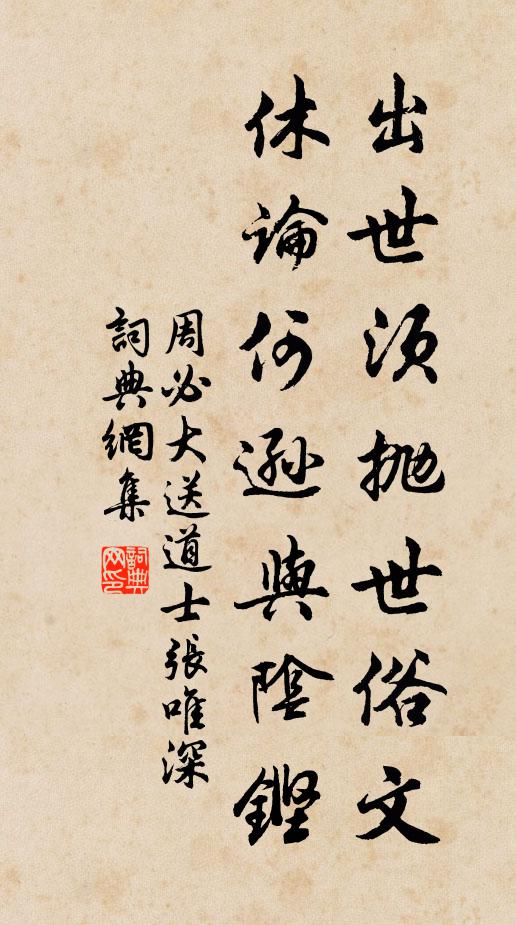 出世須拋世俗文
休論何遜與陰鏗
周必大送道士張唯深
詞典網集
詞典网印